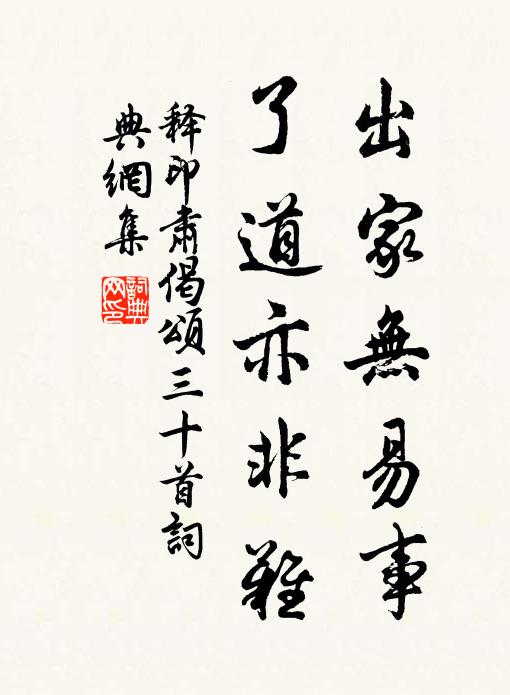 出家無易事
了道亦非難
释印肅偈頌三十首詞
典網集
詞典网印